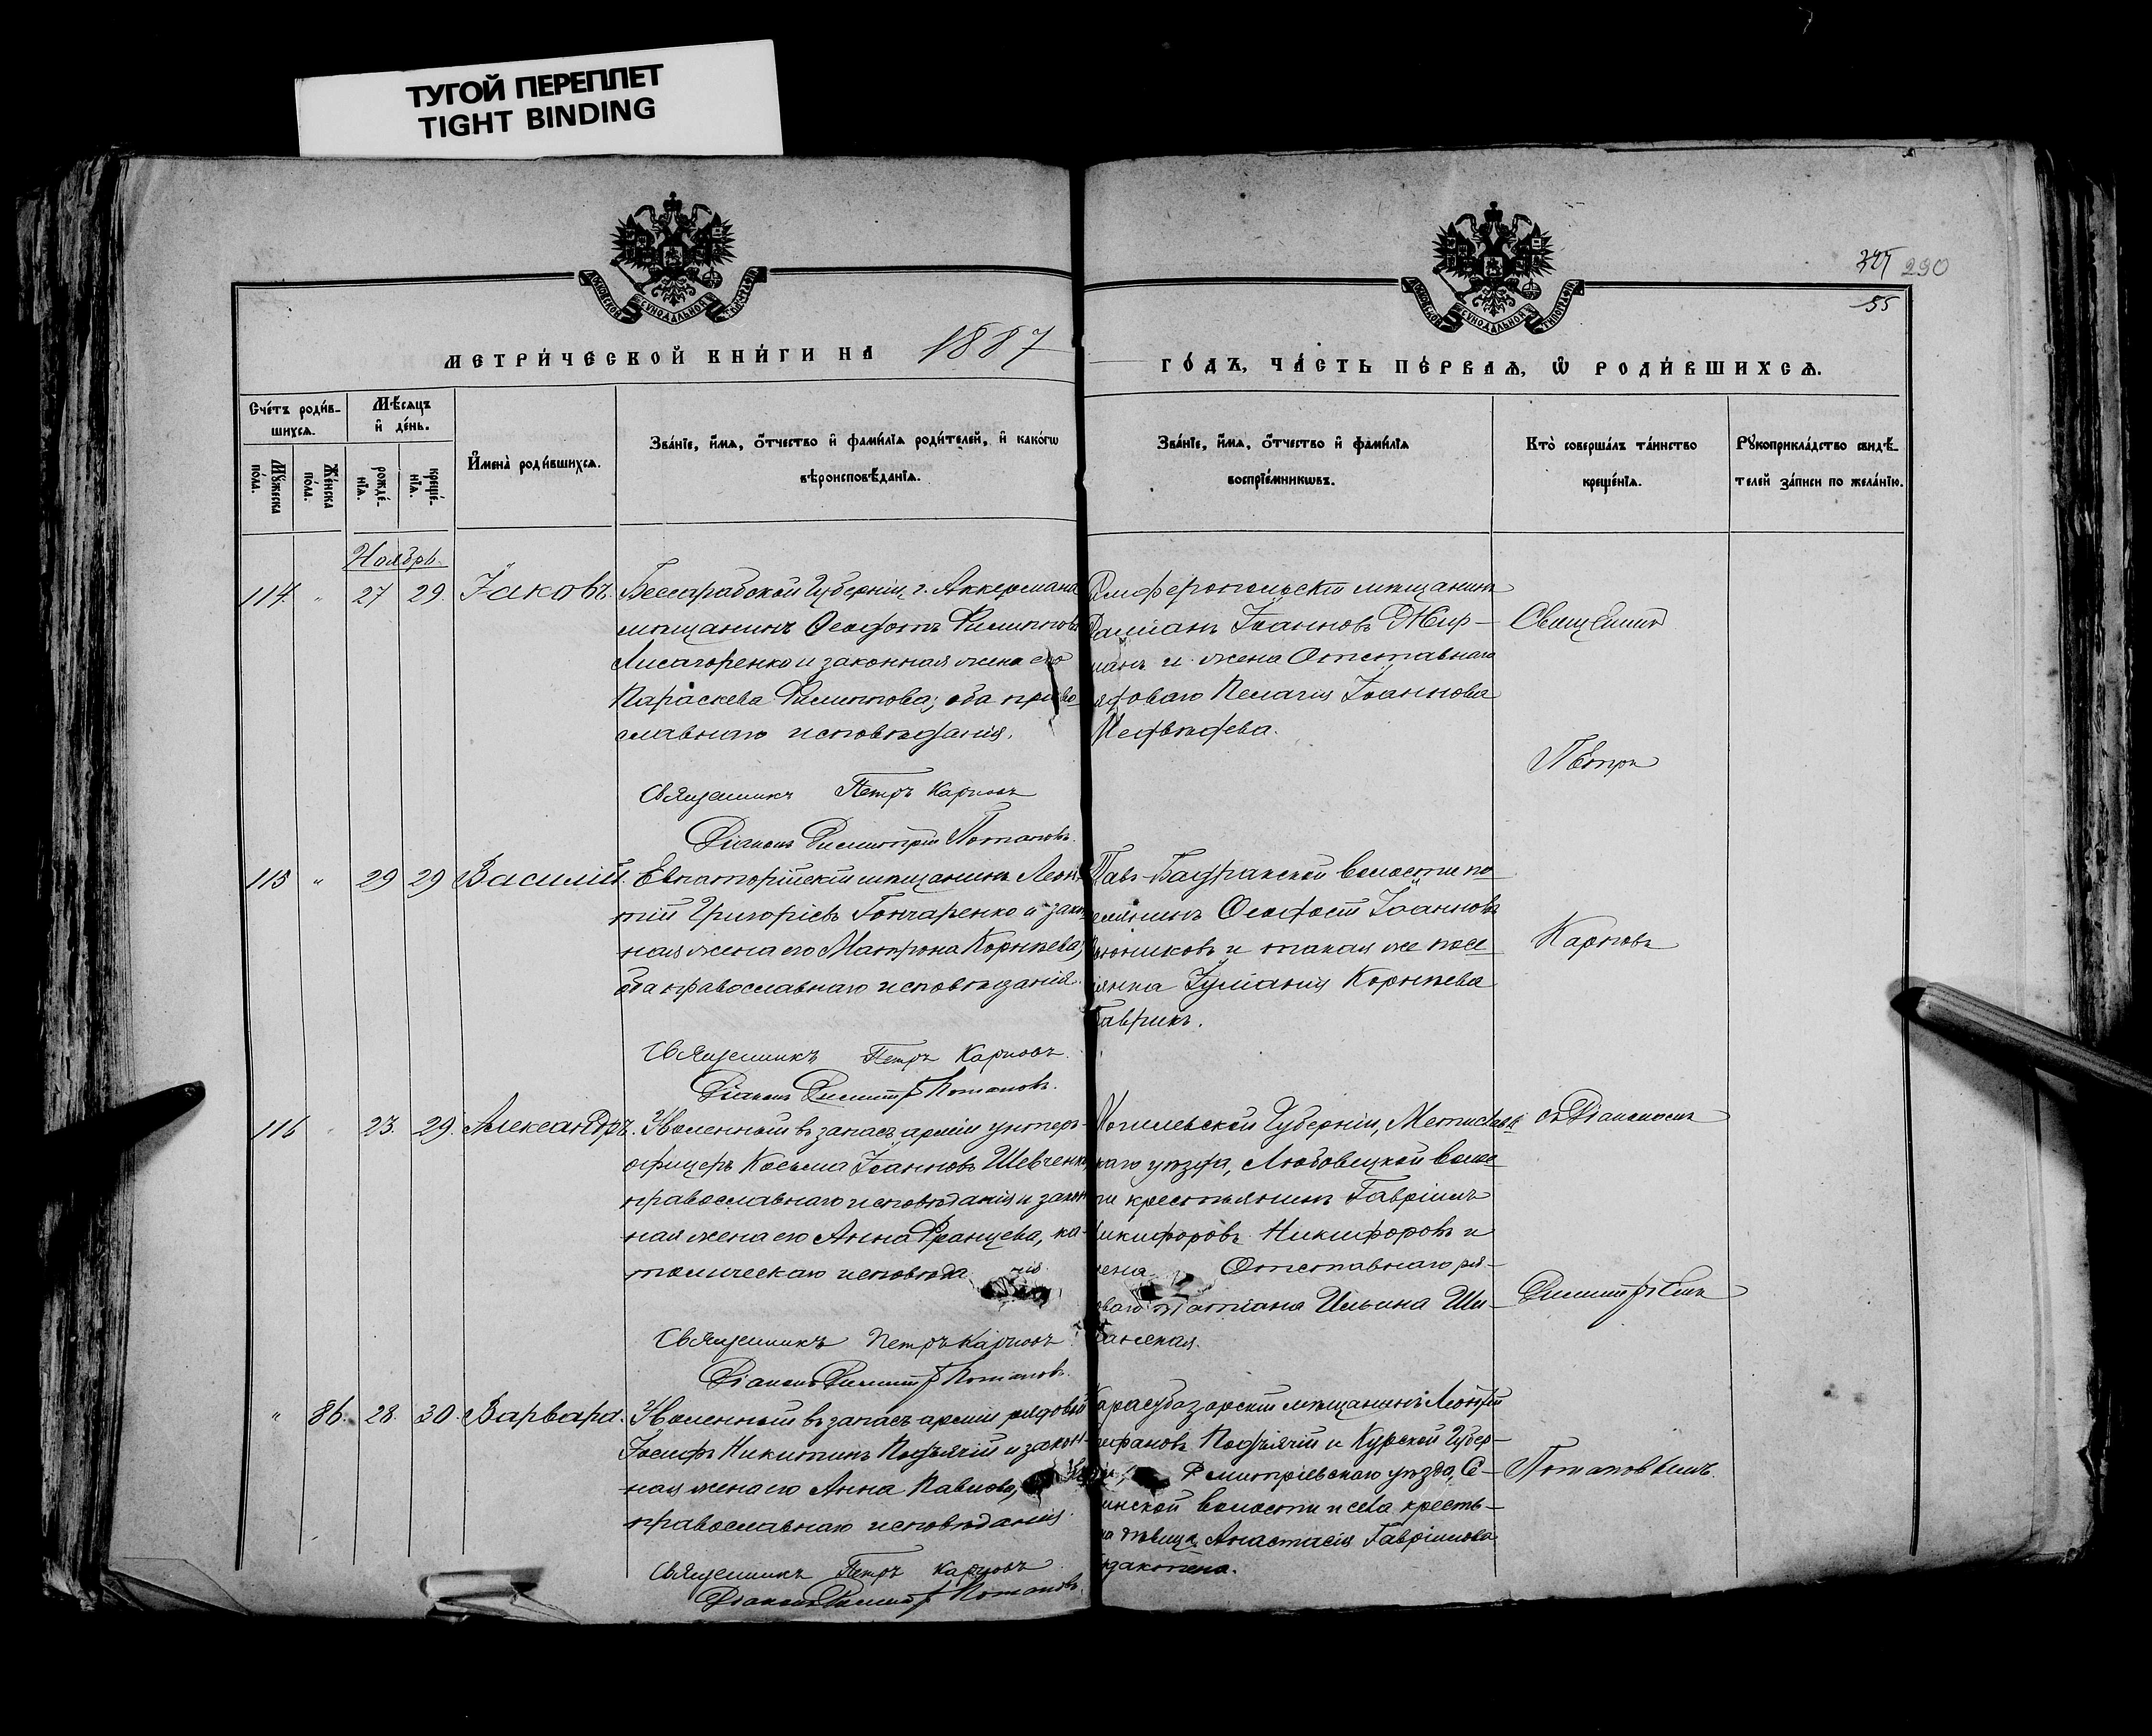 ТУГОЙ ПЕРЕПЛЕТ
TIGHT BINDING
МОСКОВСКОЙ СѴНОДАЛЬНОЙ ТИПОГРАФІИ
МОСКОВСКОЙ СѴНОДАЛЬНОЙ ТИПОГРАФІИ
290
55
МЕТРИ́ЧЕСКОЙ КНИ́ГИ НА 1887
ГО́ДЪ, ЧА́СТЬ ПЕ́РВАѦ, Ѡ҆ РОДИ́ВШИХСѦ.
Сче́тъ роди́в-
шихсѧ.
Мѣ́сѧцъ
и҆ де́нь.
Мꙋ́жеска
по́ла.
Же́нска
по́ла.
рожде́-
нїѧ.
креще́-
нїѧ.
И҆мена̀ роди́вшихсѧ.
Зва́нїе, и҆́мѧ, ѻ҆́тчество и҆ фами́лїѧ роди́телей, и҆ како́гѡ
вѣроисповѣ́данїѧ.
Зва́нїе, и҆́мѧ, ѻ҆́тчество и҆ фами́лїѧ
воспрїе́мникѡвъ.
Кто̀ соверша́лъ та́инство
креще́нїѧ.
Рꙋкоприкла́дство свидѣ́-
телей за́писи по жела́нїю.
Ноябрь.
114. " 27 29. Іаковъ.
Бессарабской Губерніи, г. Аккермана
мѣщанинъ Ѳеодотъ Филипповъ
Лисагоренко и законная жена его
Параскева Филиппова; оба право-
славнаго исповѣданія.
Священникъ Петръ Карповъ
Діаконъ Димитрій Потаповъ.
мѣщанинъ
Іаннов
и жена Отставнаго
Пелагія Іоаннова
Медвѣдева.
Священник
Петръ
115 " 29 29 Василій.
Евпаторійскій мѣщанинъ Леон-
тій Григоріевъ Гончаренко и закон
ная жена его Матрона Корнѣева;
оба православнаго исповѣданія.
Священникъ Петръ Карповъ.
Діаконъ Димитр Потаповъ.
волости по
Ѳеодосій Іоанновъ
и такая же посе
Іуліанія Корнѣева
Гаврикъ.
Карповъ
116 " 23. 29. Александръ.
Уволенный въ запасъ арміи унтеръ-
офицеръ Косьма Іоанновъ Шевченко
православнаго исповѣданія и закон
ная жена его Анна Францева, ка-
толическаго исповѣда нія.
Священникъ Петръ Карповъ.
Діаконъ Димитр Потаповъ.
Могилевской Губерніи, Мстиславль
каго уѣзда, Любовецкой воло
ти крестьянинъ Гавріилъ
Никифоровъ Никифоровъ и
жена Отставнаго ря-
Татіана Ильина Ши-
съ Діакономъ
Димитріемъ
" 86. 28. 30. Варвара.
Уволенный въ запасъ арміи рядовый
Іосифъ Никитинъ Подъячій и закон-
ная жена его Анна Павлова,
православнаго исповѣданія.
Священникъ Петръ Карповъ
Діаконъ Димитр Потаповъ.
Карасубазарскій мѣщанинъ
Подъячій и Курской Губер-
Дмитріевскаго уѣзда, Се-
волости и села кресть-
дѣвица Анастасія Гавріилова
Потаповымъ.